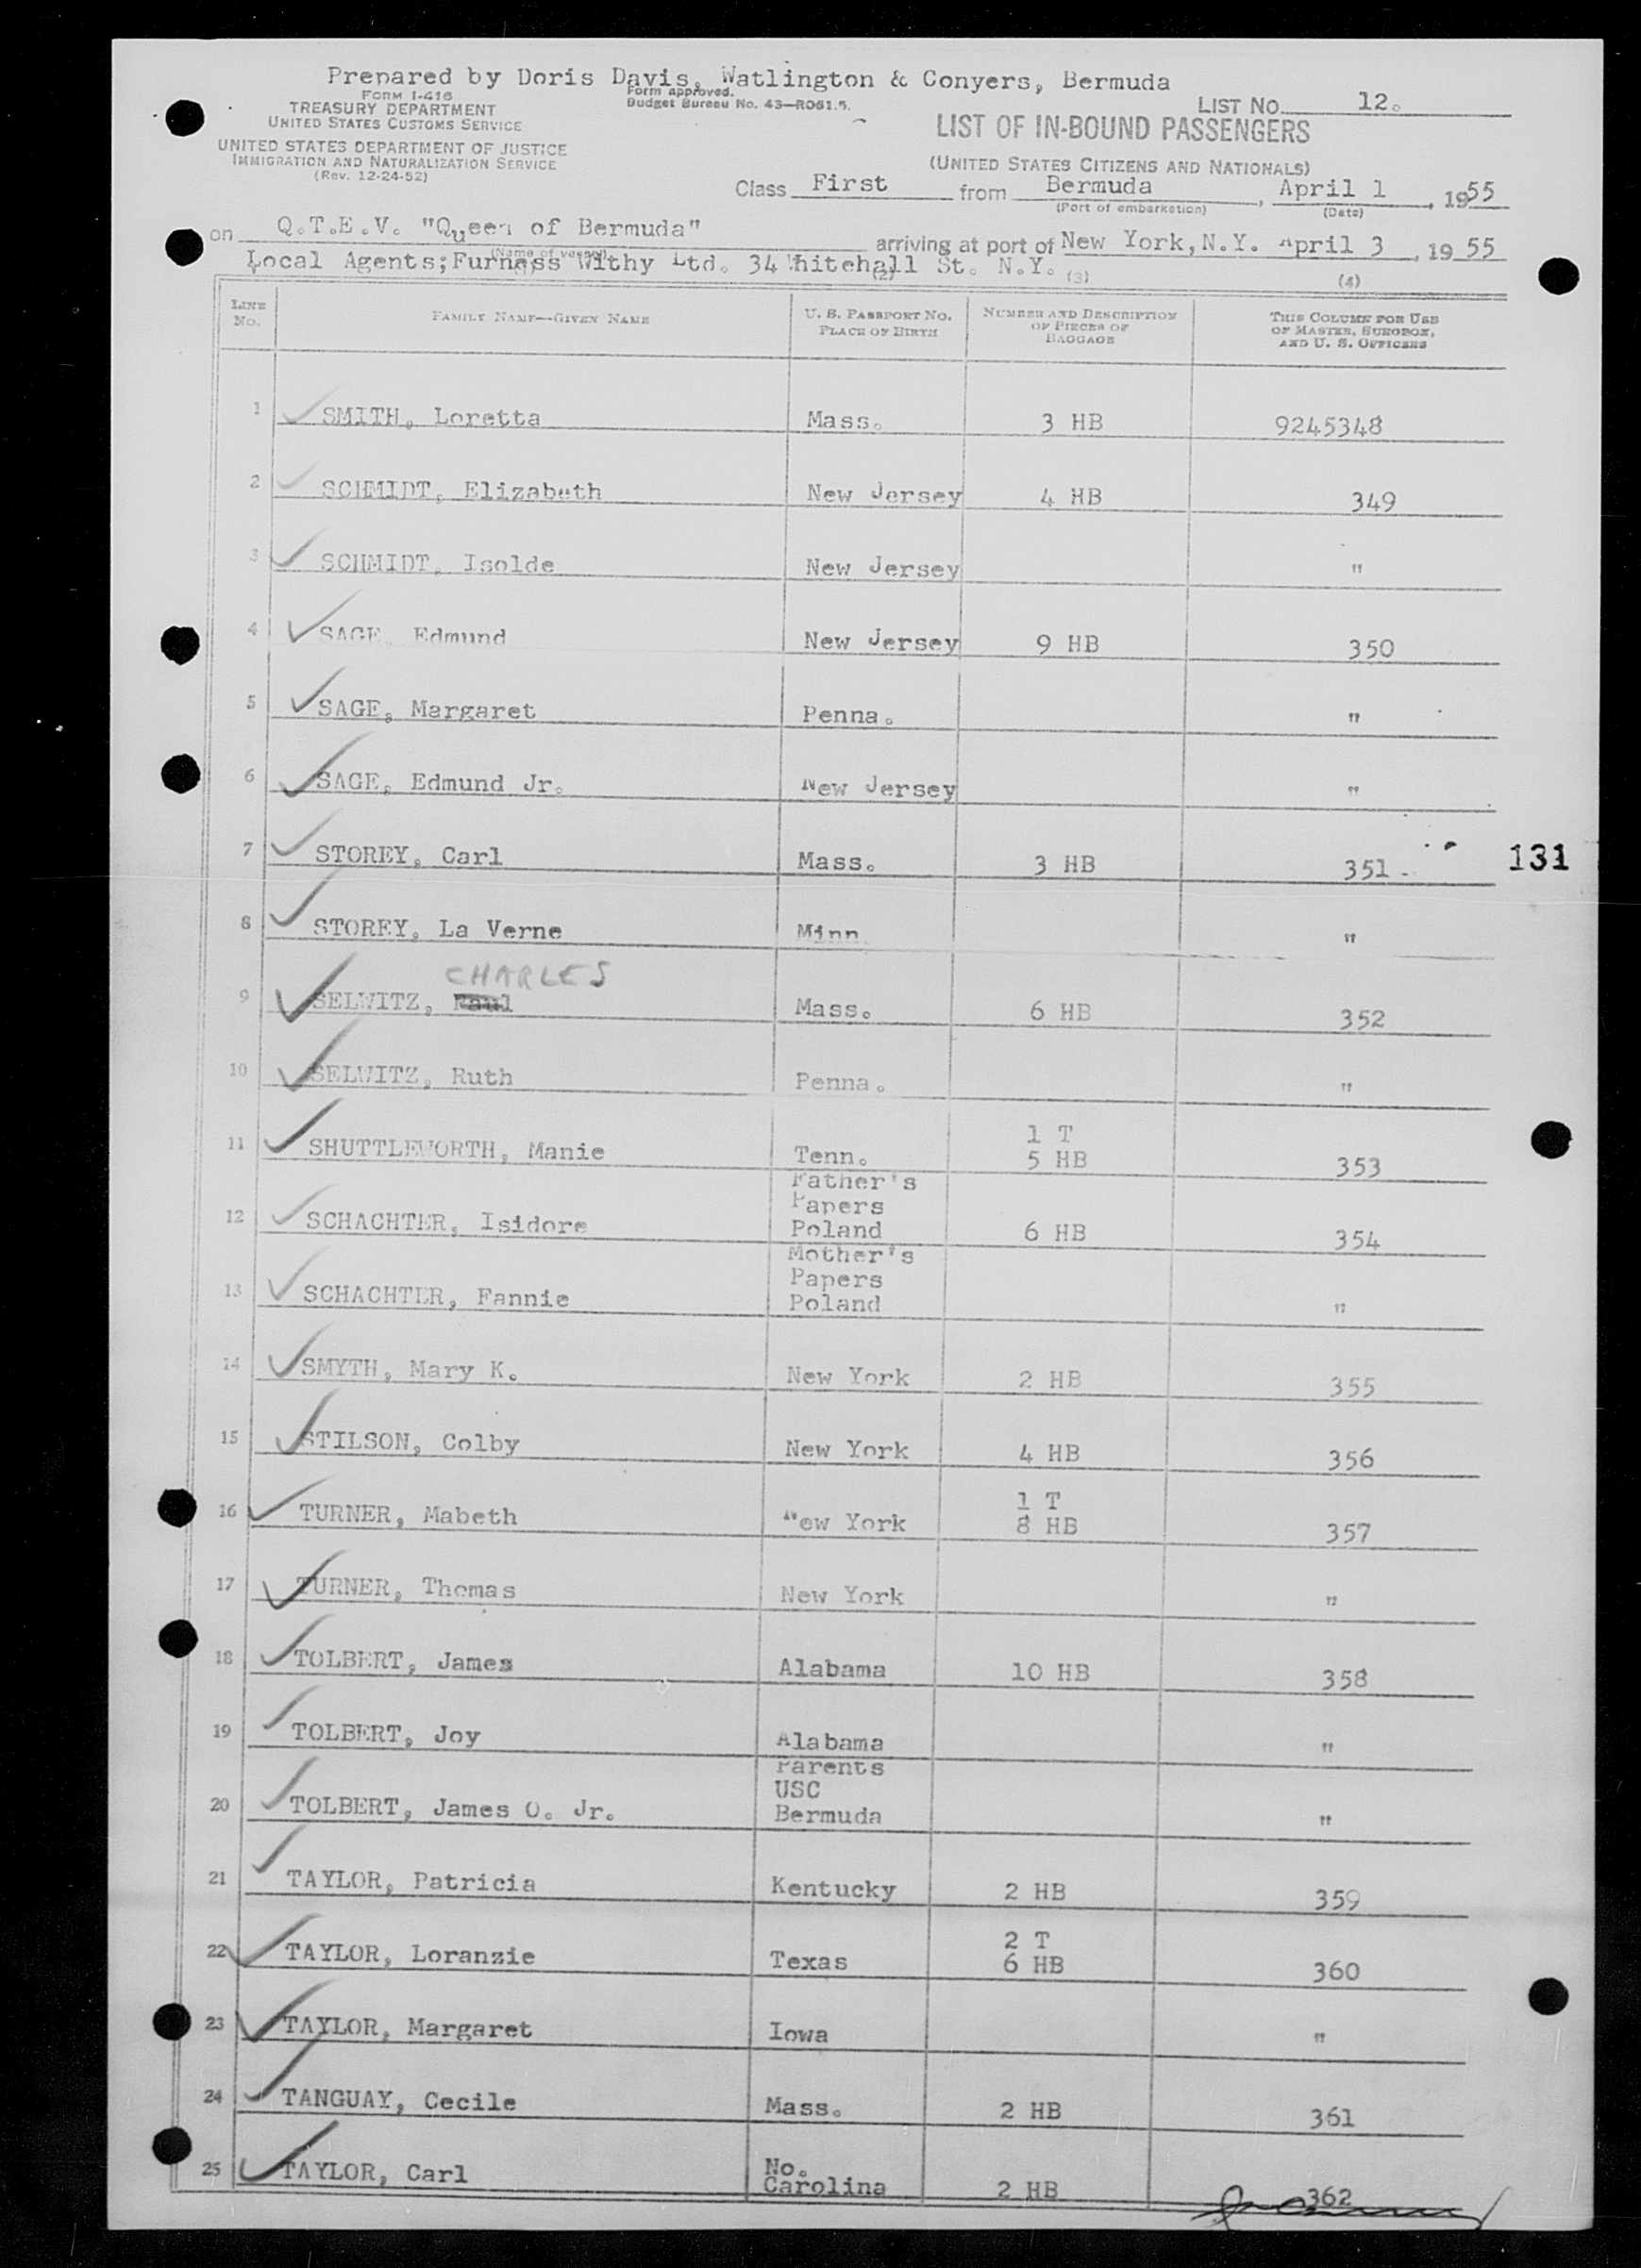 Prepared by Doris Davis, Watlington & Conyers, Bermuda
FORM I-416
TREASURY DEPARTMENT
UNITED STATES CUSTOMS SERVICE
UNITED STATES DEPARTMENT OF JUSTICE
IMMIGRATION AND NATURALIZATION SERVICE
(Rev. 12-24-52)
Form approved.
Budget Bureau No. 43—R061.5.
LIST NO. 12.
LIST OF IN-BOUND PASSENGERS
(UNITED STATES CITIZENS AND NATIONALS)
Class First from Bermuda, April 1, 1955
(Port of embarkation) (Date)
on Q.T.E.V. "Queen of Bermuda" arriving at port of New York, N.Y. April 3, 1955
(Name of vessel)
Local Agents; Furness Withy Ltd. 34 Whitehall St. N.Y.
(2) (3) (4)
LINE No. FAMILY NAME—GIVEN NAME U. S. PASSPORT NO. PLACE OF BIRTH NUMBER AND DESCRIPTION OF PIECES OF BAGGAGE THIS COLUMN FOR USE OF MASTER, SURGEON, AND U. S. OFFICERS
1 SMITH, Loretta Mass. 3 HB 9245348
2 SCHMIDT, Elizabeth New Jersey 4 HB 349
3 SCHMIDT, Isolde New Jersey "
4 SAGE, Edmund New Jersey 9 HB 350
5 SAGE, Margaret Penna. "
6 SAGE, Edmund Jr. New Jersey "
7 STOREY, Carl Mass. 3 HB 351
131
8 STOREY, La Verne Minn "
CHARLES
9 SELWITZ, Paul Mass. 6 HB 352
10 SELWITZ, Ruth Penna. "
11 SHUTTLEWORTH, Manie Tenn. 1 T 5 HB 353
12 SCHACHTER, Isidore Father's Papers Poland 6 HB 354
13 SCHACHTER, Fannie Mother's Papers Poland "
14 SMYTH, Mary K. New York 2 HB 355
15 STILSON, Colby New York 4 HB 356
16 TURNER, Mabeth New York 1 T 8 HB 357
17 TURNER, Thomas New York "
18 TOLBERT, James Alabama 10 HB 358
19 TOLBERT, Joy Alabama "
20 TOLBERT, James O. Jr. Parents USC Bermuda "
21 TAYLOR, Patricia Kentucky 2 HB 359
22 TAYLOR, Loranzie Texas 2 T 6 HB 360
23 TAYLOR, Margaret Iowa "
24 TANGUAY, Cecile Mass. 2 HB 361
25 TAYLOR, Carl No. Carolina 2 HB 362